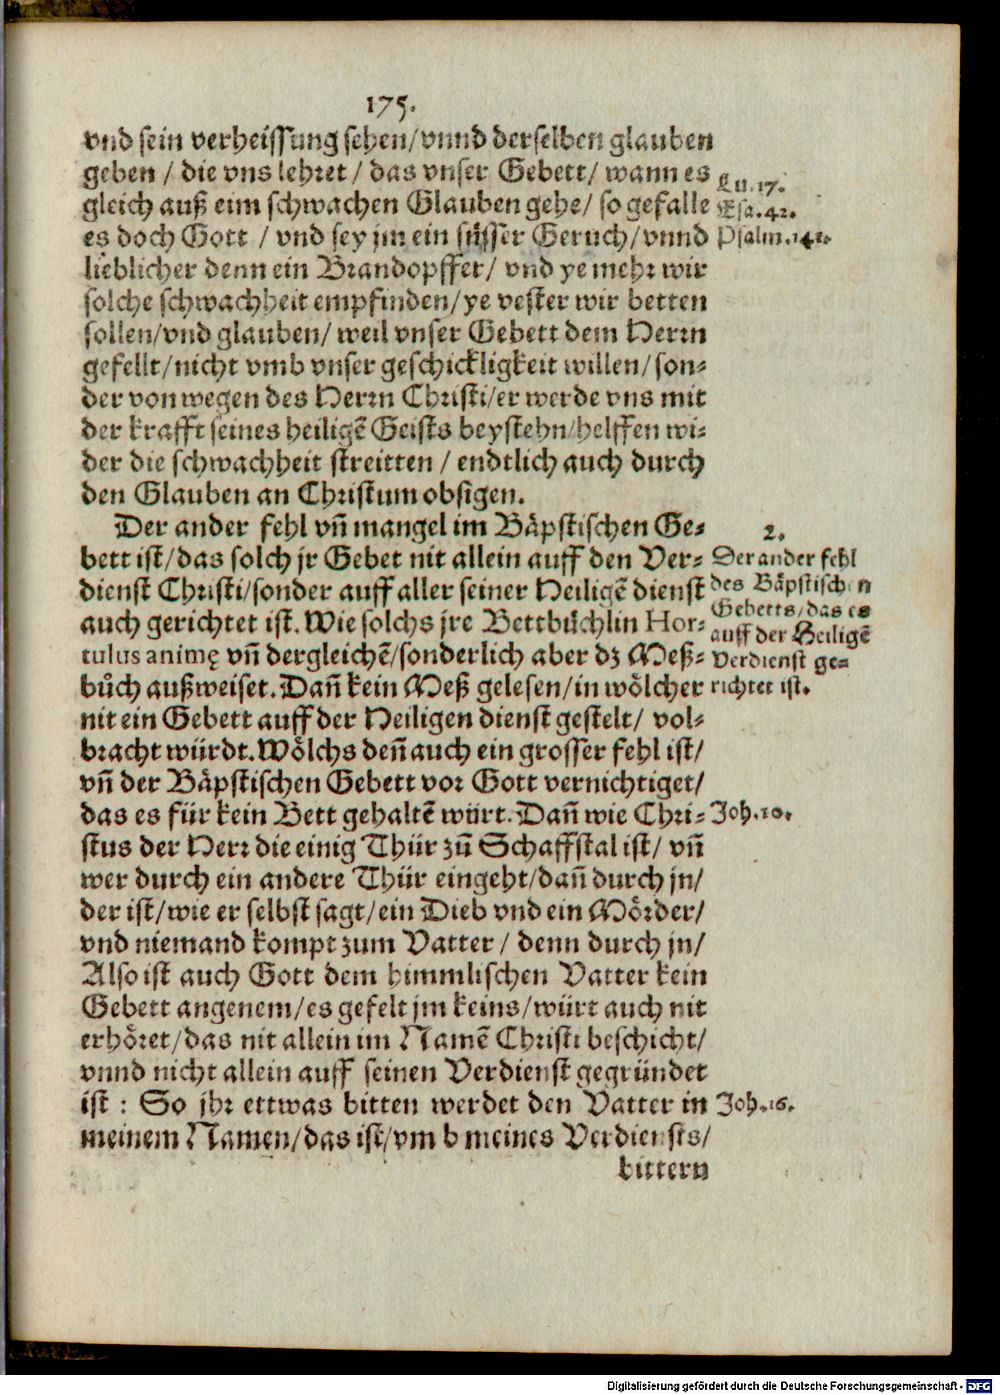 175.
vnd sein verheissung sehen/ vnnd derselben glauben
geben / die vns lehret / das vnser Gebett/ wann es
gleich auß eim schwachen Glauben gehe/ so gefalle
es doch Gott / vnd sey jm ein süsser Geruch/ vnnd
lieblicher denn ein Brandopffer/ vnd ye mehr wir
solche schwachheit empfinden/ ye vester wir betten
sollen/ vnd glauben/ weil vnser Gebett dem Herrn
gefellt/ nicht vmb vnser geschickligkeit willen/ son-
der von wegen des Herrn Christi/ er werde vns mit
der krafft seines heiligē Geists beystehn/ helffen wi-
der die schwachheit streitten / endtlich auch durch
den Glauben an Christum obsigen.
Der ander fehl vñ mangel im Bäpstischen Ge-
bett ist/ das solch jr Gebet nit allein auff den Ver-
dienst Christi/ sonder auff aller seiner Heiligē dienst
auch gerichtet ist. Wie solchs jre Bettbüchlin Hor-
tulus animę vñ dergleichē/ sonderlich aber dz Meß-
bůch außweiset. Dañ kein Meß gelesen/ in wölcher
nit ein Gebett auff der Heiligen dienst gestelt/ vol-
bracht würdt. Wölchs deñ auch ein grosser fehl ist/
vñ der Bäpstischen Gebett vor Gott vernichtiget/
das es für kein Bett gehaltē würt. Dañ wie Chri-
stus der Herr die einig Thür zů Schaffstal ist/ vñ
wer durch ein andere Thür eingeht/ dañ durch jn/
der ist/ wie er selbst sagt/ ein Dieb vnd ein Mörder/
vnd niemand kompt zum Vatter / denn durch jn/
Also ist auch Gott dem himmlischen Vatter kein
Gebett angenem/ es gefelt jm keins/ würt auch nit
erhöret/ das nit allein im Namē Christi beschicht/
vnnd nicht allein auff seinen Verdienst gegründet
ist : So jhr ettwas bitten werdet den Vatter in
meinem Namen/ das ist/ vm b meines Verdiensts/
bittern
Lu. 17.
Esa. 42.
Psalm. 141.
2.
Der ander fehl
des Bäpstischen
Gebetts/ das es
auff der Heiligē
Verdienst ge-
richtet ist.
Joh. 10.
Joh. 16.
Digitalisierung gefördert durch die Deutsche Forschungsgemeinschaft - DFG